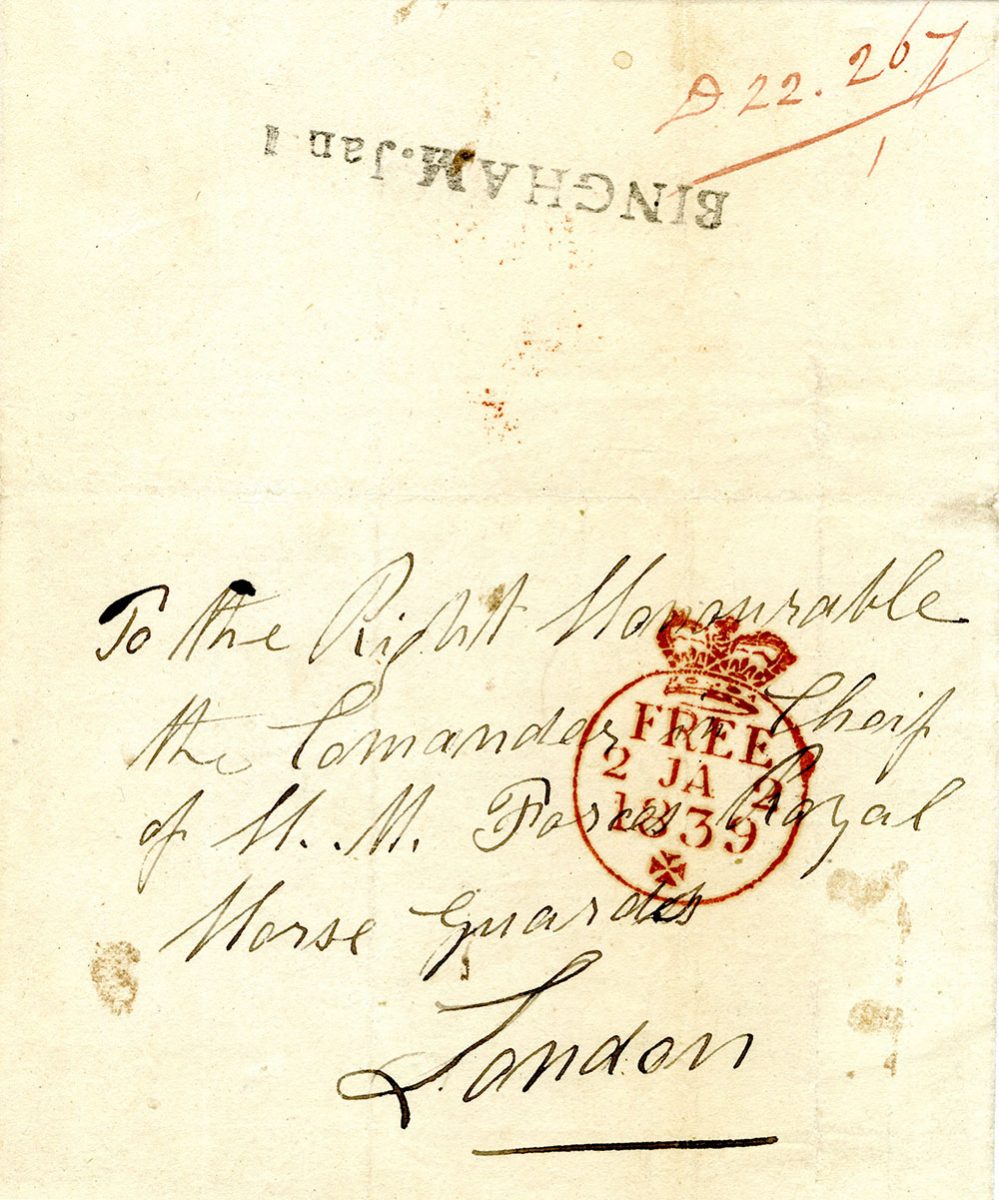 A 22. 267
BINGHAM.Jan 1
To the Right Honourable
the Comander in Cheif
of H. M. Forces Royal
Horse Guards
London
FREE
2 JA 2
1839